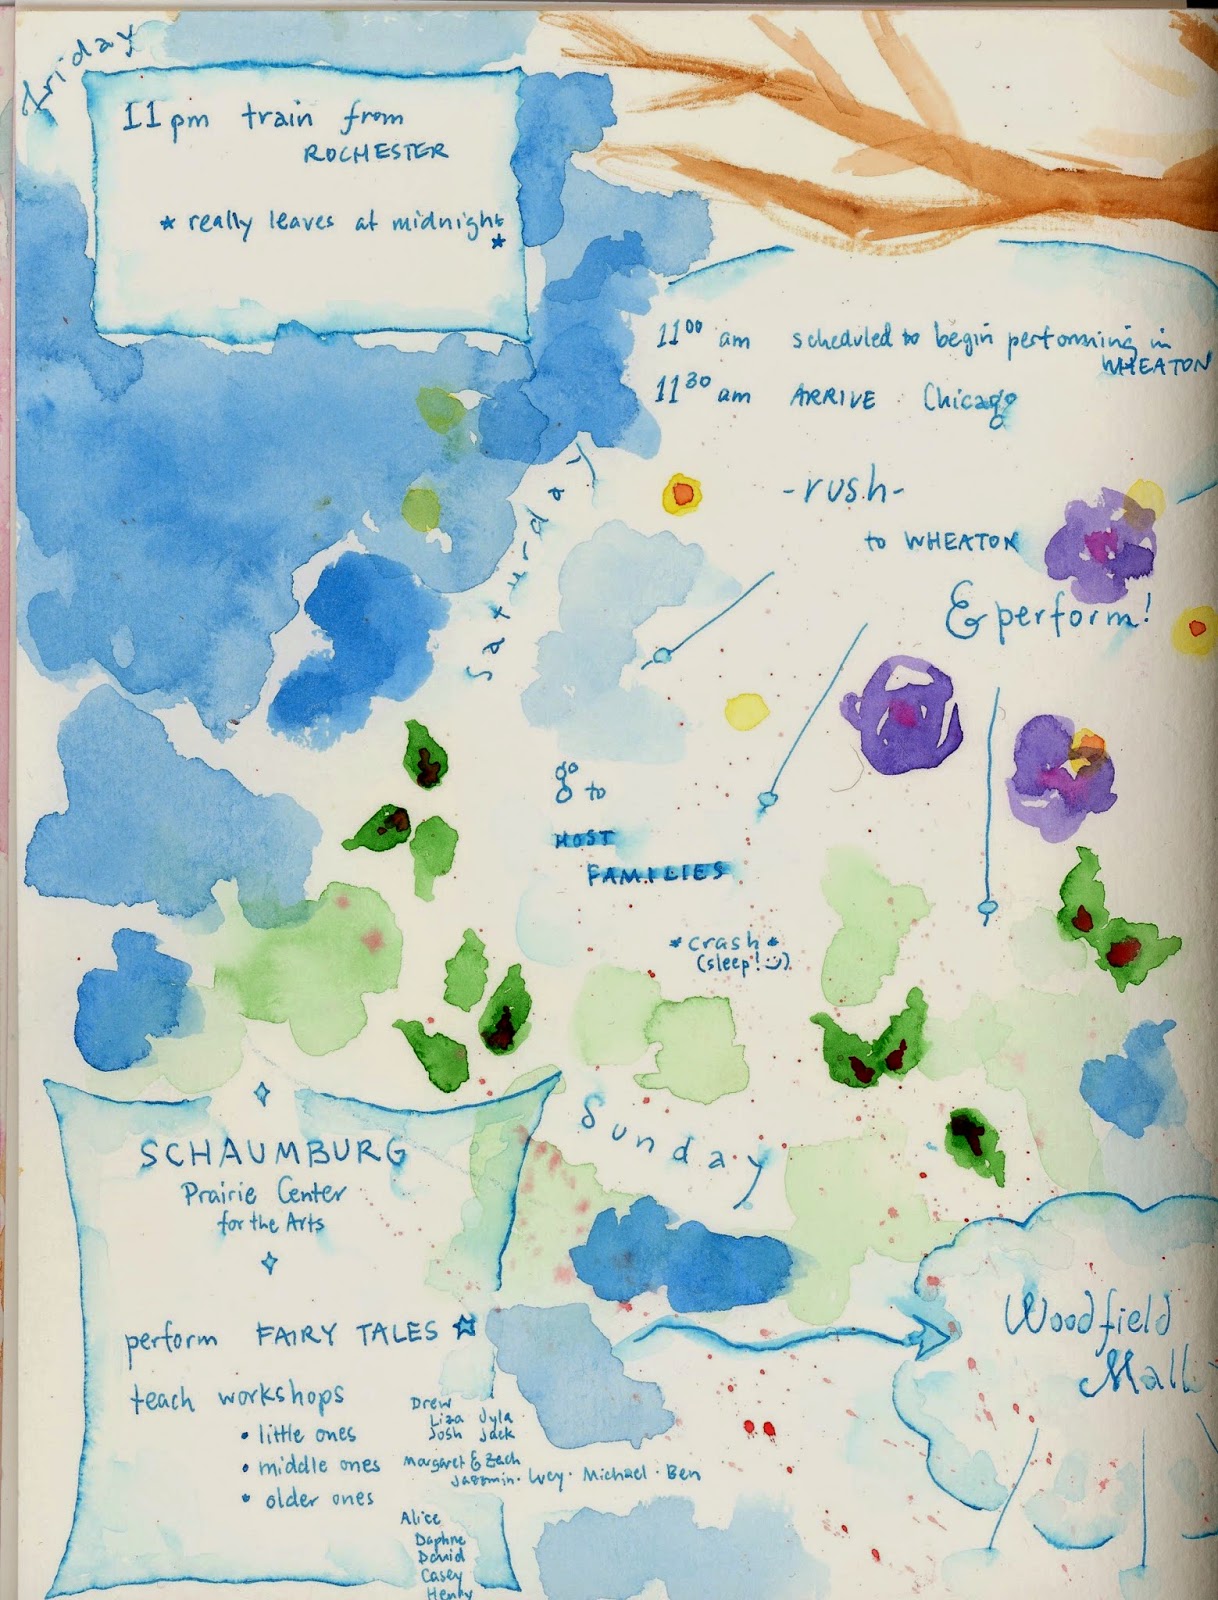 Friday
11pm train from
ROCHESTER
* really leaves at midnight *
11 00 am scheduled to begin performing in
WHEATON
11 30 am ARRIVE Chicago
-rush-
to WHEATON
& perform!
Saturday
go to
HOST
FAMILIES
*crash*
(sleep! :))
Sunday
SCHAUMBURG
Prairie Center
for the Arts
perform FAIRY TALES ☆
teach workshops
• little ones
• middle ones
• older ones
Drew
Liza Jyla
Josh Jack
Margaret & Zach
Jazzmin · Lucy · Michael · Ben
Alice
Daphne
David
Casey
Henry
Woodfield
Mall